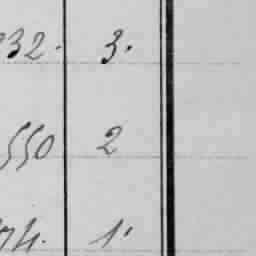 232. 3.
550 2
74. 1.